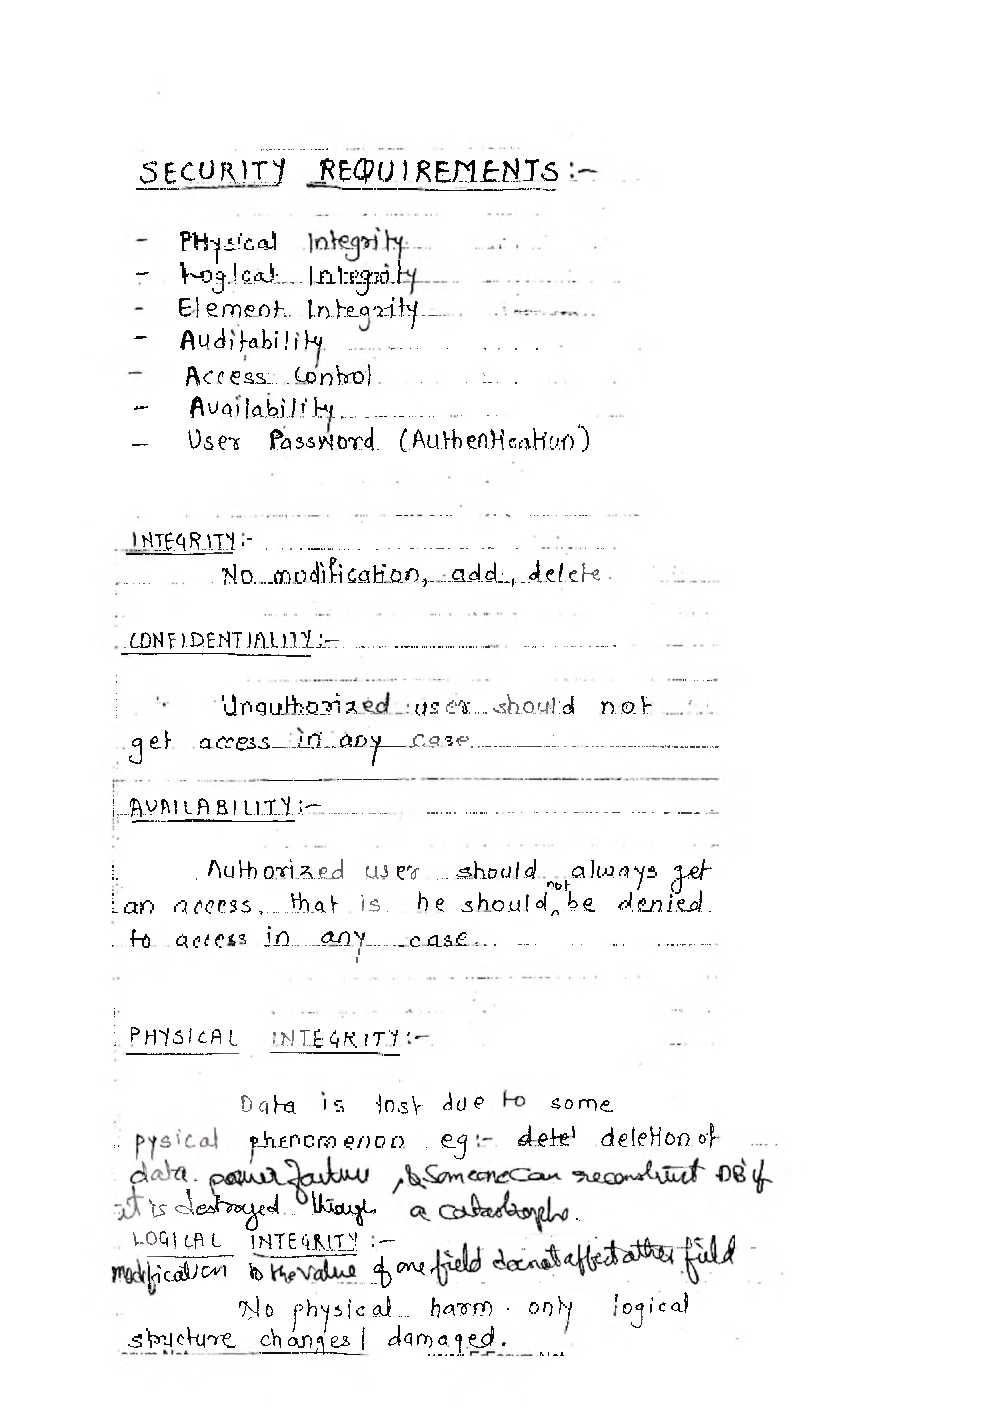 SECURITY REQUIREMENTS :-
- PHysical Integrity
- Logical Integrity
- Element Integrity
- Auditability
- Access Control
- Availability
- User Password (Authentication)
INTEGRITY:-
No modification, add, delete
CONFIDENTIALITY:-
Unauthorized user should not
get access in any case
AVAILABILITY:-
Authorized user should always get
an access, that is he should not be denied
to access in any case.
PHYSICAL INTEGRITY:-
Data is lost due to some
pysical phenomenon eg:- detel deletion of
data. power failure , & Someone can reconstruct DB if
it is destroyed through a catastrophe.
LOGICAL INTEGRITY :-
modification to the value of one field doesnot affect other field
No physical harm. only logical
structure changes / damaged.